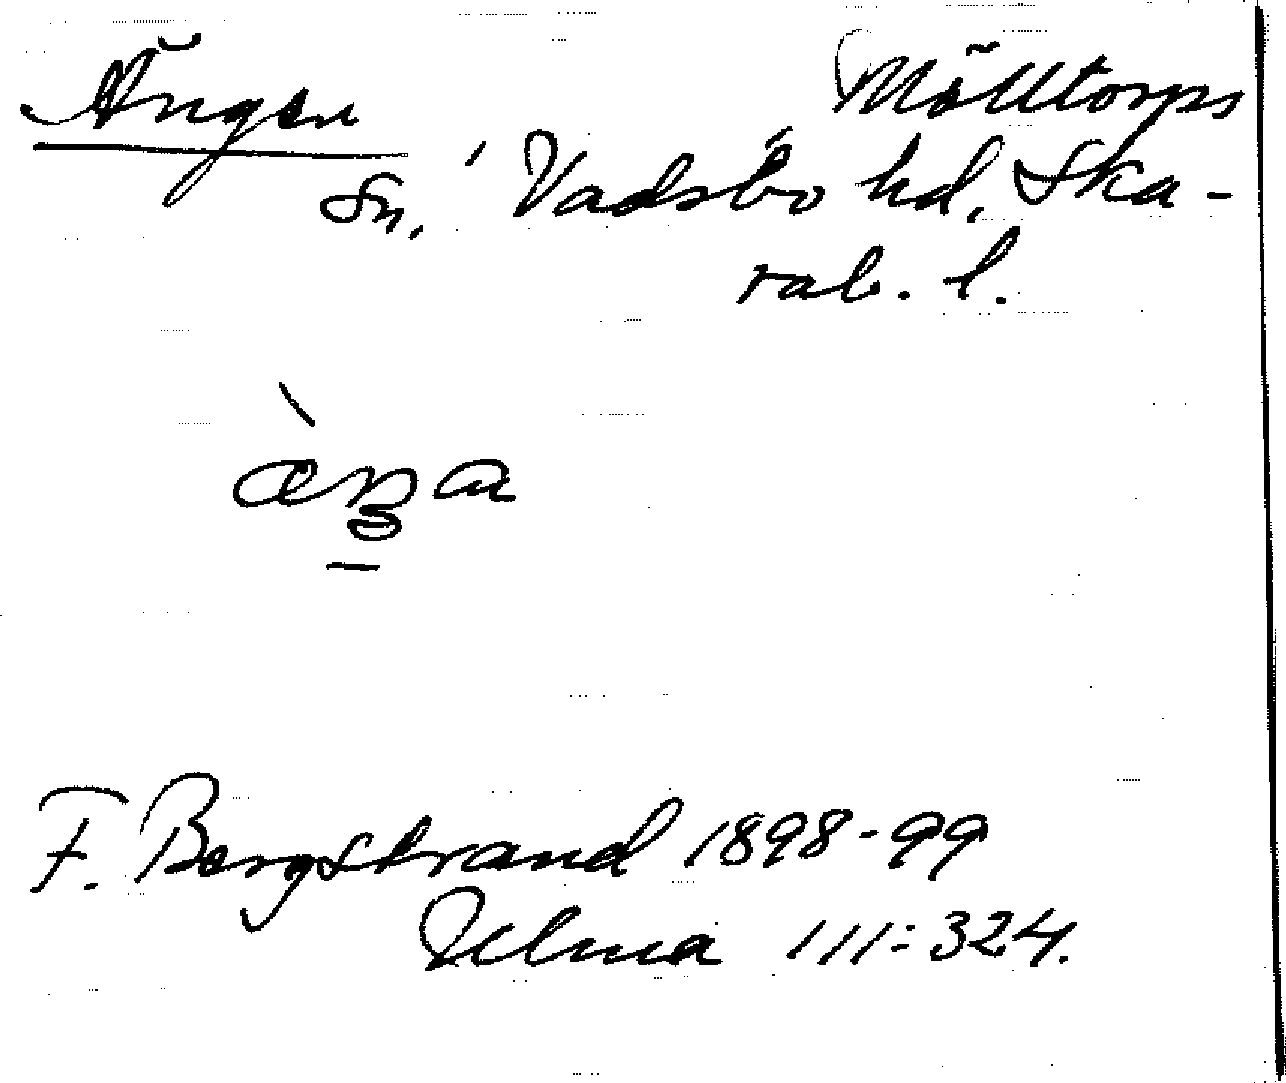 Ängen Mölltorps
Sn, Vadsbo hd, Ska-
rab. l.
F. Bergstrand 1898-99
Ulma 111:324.